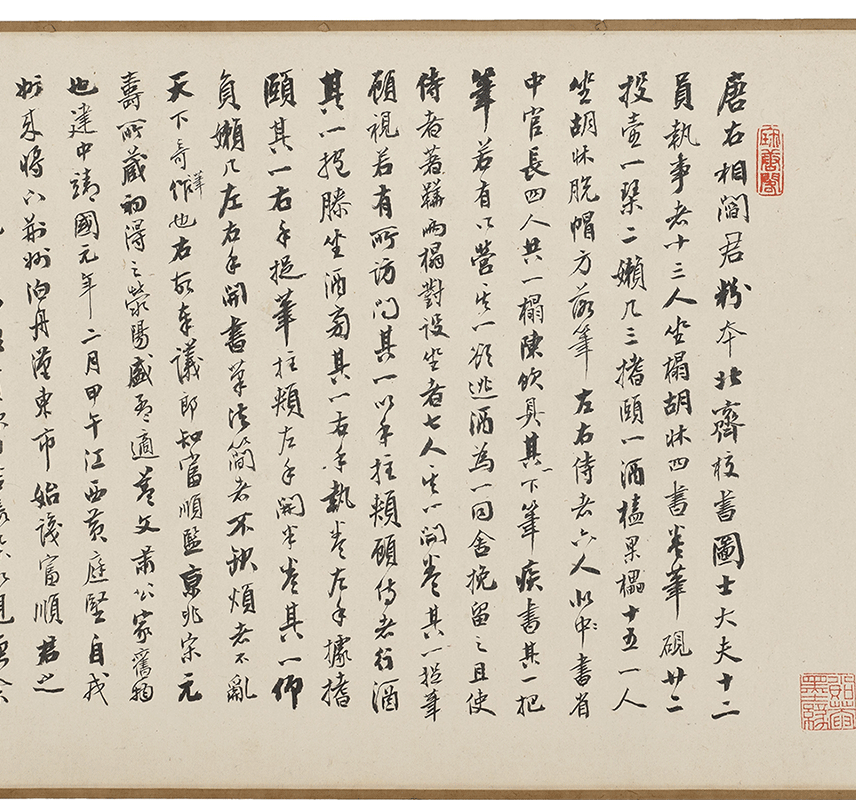 唐右相閻君粉本北齊校書圖士大夫十二
員執事者十三人坐榻胡牀四書卷筆硯廿二
投壺一琴二嬾几三搘頤一酒榼果櫑十五一人
坐胡牀脫帽方落筆左右侍者六人似中書省
中官長四人共一榻陳飲具其一下筆疾書其一把
筆若有所營其一欲逃酒為一同舍挽留之且使
侍者著鞾兩榻對設坐者七人其一開卷其一捉筆
顧視若有所訪問其一以手拄頰顧侍者行酒
其一抱膝坐酒旁其一右手執卷左手據搘
頤其一右手捉筆拄頰左手開半卷其一仰
負嬾几左右手開書筆法簡者不缺煩者不亂
天下奇筆作也右故奉議郎知富順監京兆宋元
壽所藏初得之滎陽盛孟適蓋文肅公家舊物
也建中靖國元年二月甲午江西黃庭堅自戎
州來將下荊州泊舟漢東市始識富順君之